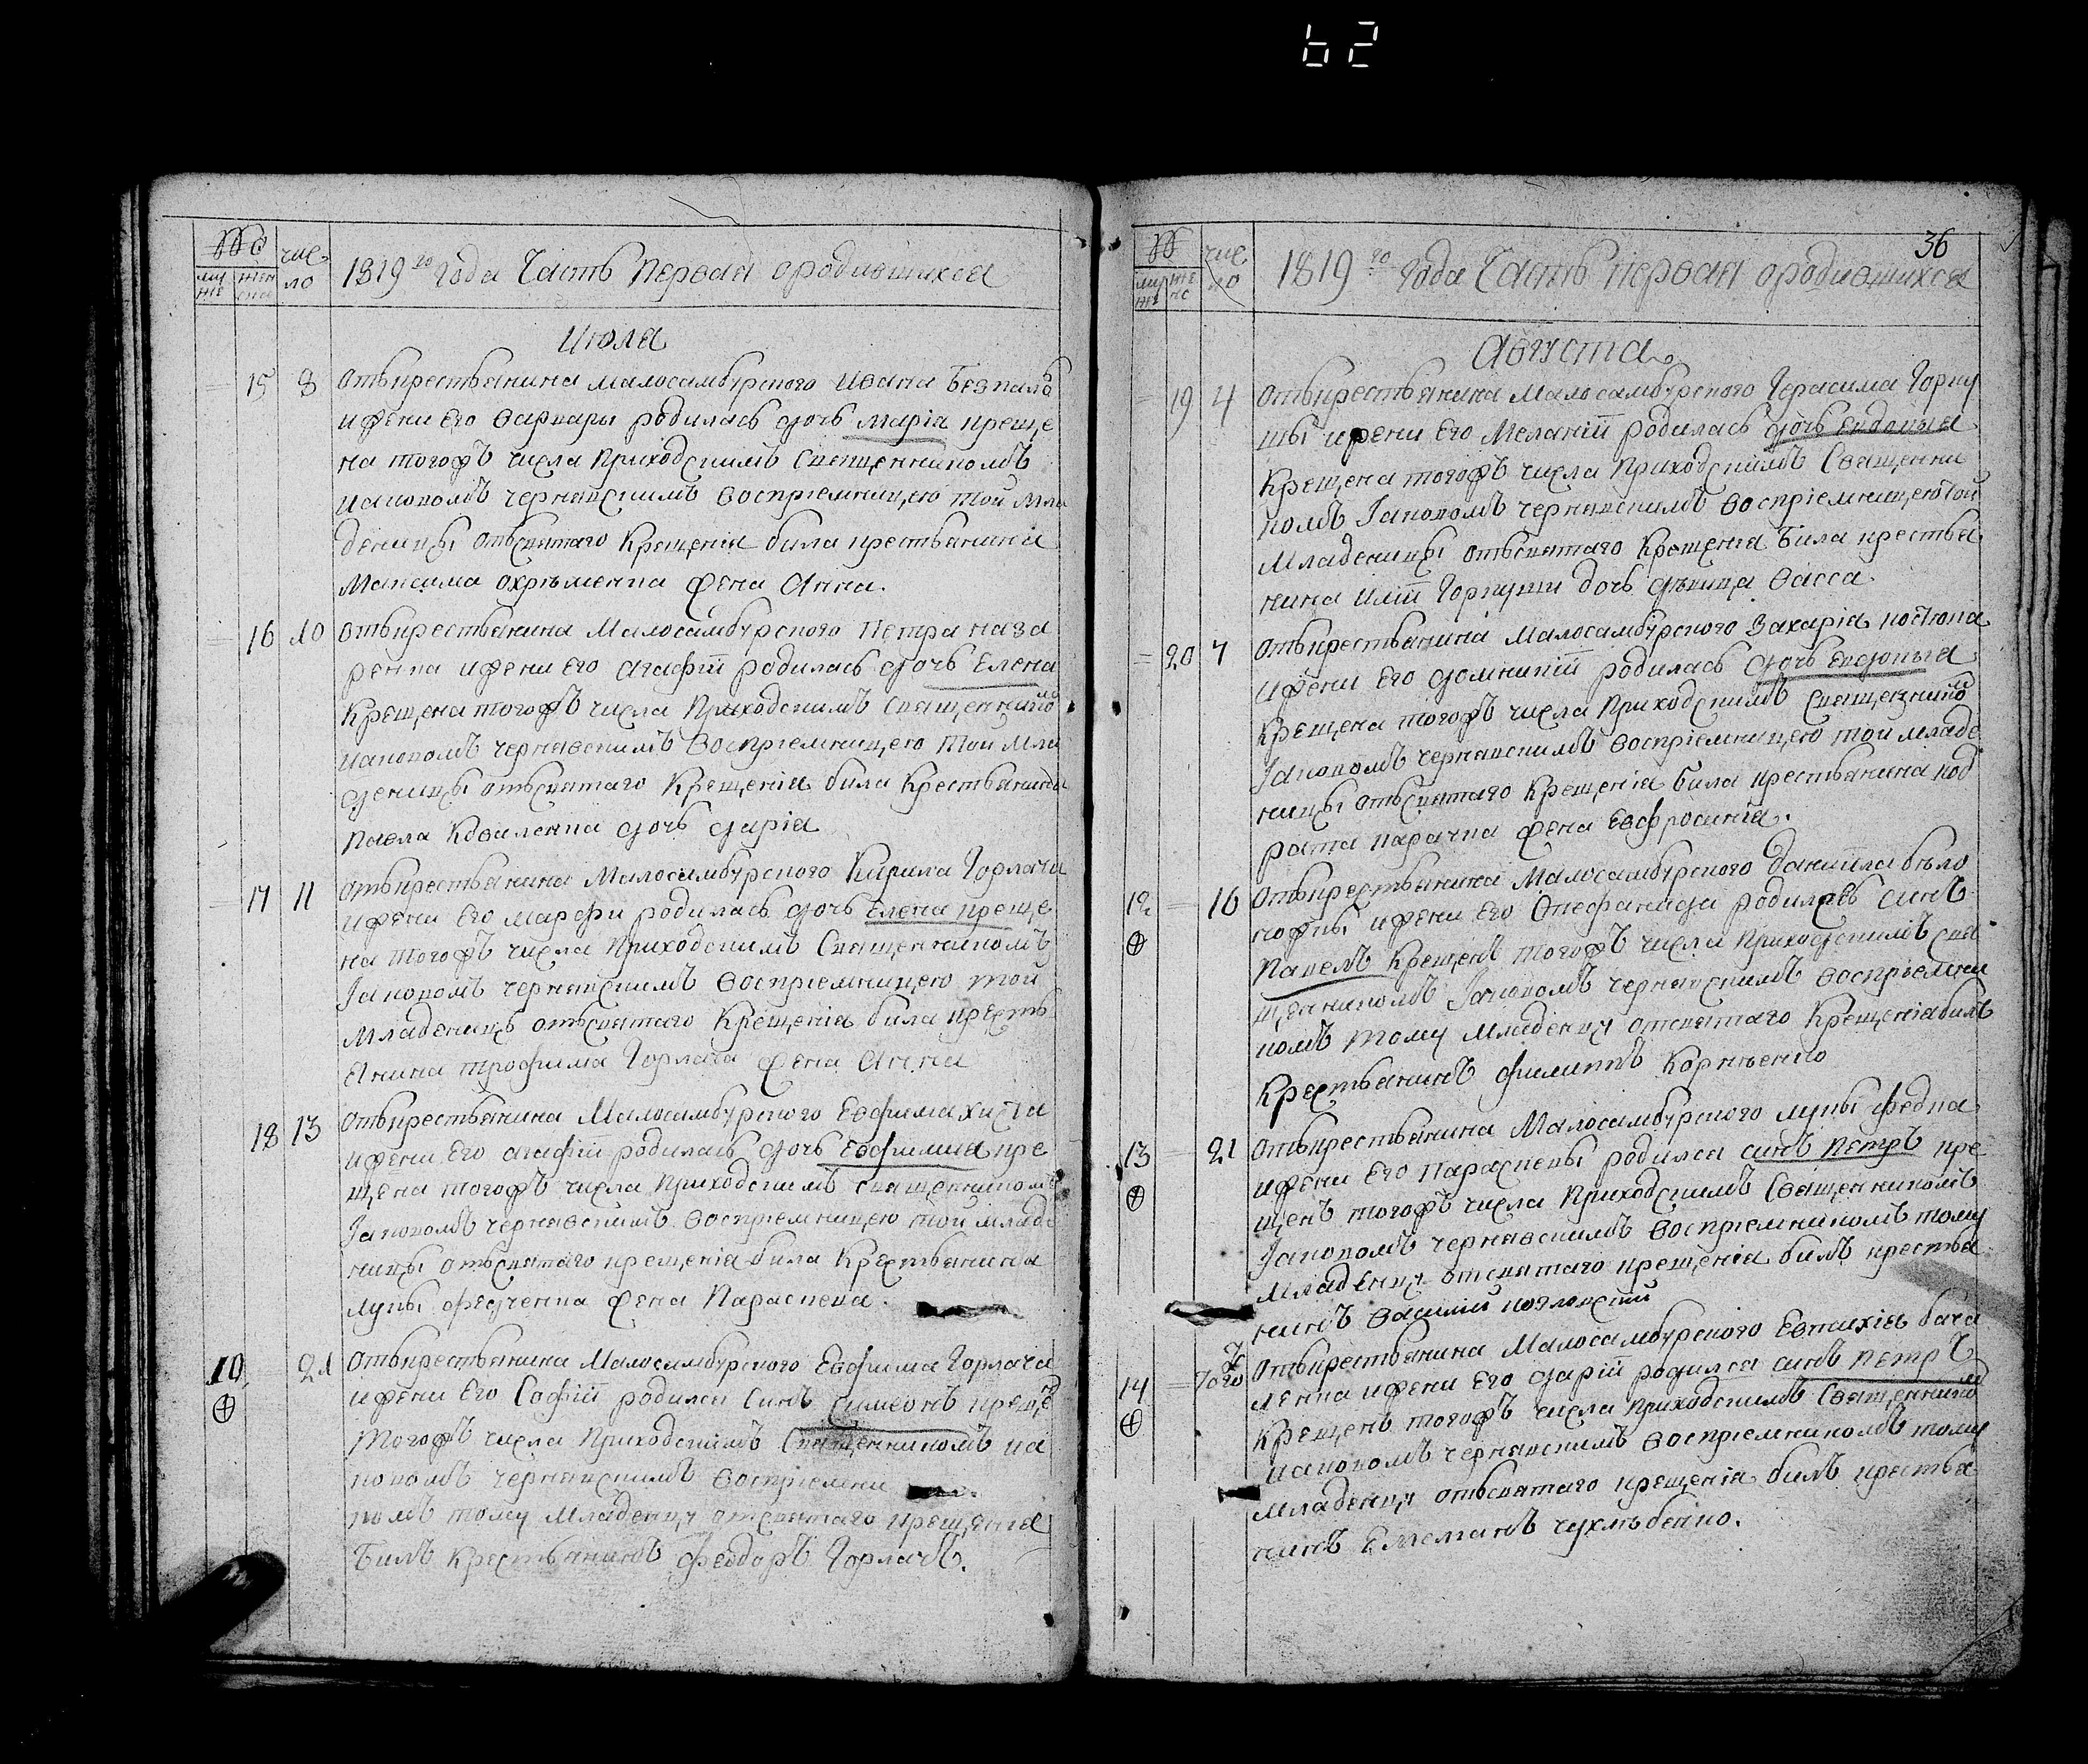 62
№
муж
женска
чис
ло
1819го Года Часть Первая ородившихся
Июля
15 8 Отькрестьянина Малосамбурского Ивана Безпало
ижени Его Варвары родилась дочь Марія креще
на тогожъ числа Приходскимъ Священникомъ
Иаковомъ Чернявскимъ Воспріемницею той Мла
деницы Отьсвятаго Крещенія била крестьянина
Максима Охрѣменка жена Анна.
16 10 Отькрестьянина Малосамбурского Петра наза
ренка ижени Его агафіи родилась дочь Елена
Крещена тогожъ числа Приходскимъ Священнико
м
Иаковомъ Чернявскимъ Воспріемницею той Мла
деницы отьсвятаго Крещенія била Крестьянина
Павла Коваленка дочь дарія
17 11 Отькрестьянина Малосамбурского Кирила Горлача
ижени Его марфи родилась дочь Елена креще
на тогожъ числа Приходскимъ Священникомъ
Іаковомъ Чернявскимъ Воспріемницею той
Младеницы отьсвятаго Крещенія била кресть
янина трофима Горлача жена Анна
18 13 Отькрестьянина Малосамбурского Евфима
ижени Его агафіи родилась дочь Евфимия кре
щена тогожъ числа Приходскимъ священникомъ
Іаковомъ чернявскимъ Воспріемницею той младе
ницы отьсвятаго крещенія била Крестьянина
лукы федченка жена Параскева.
10 21 Отькрестьянина Малосамбурского Евфима Горлача
ижени Его Софіи родился Синъ Симеонъ крещенъ
тогожъ числа Приходскимъ Священникомъ иа
ковомъ чернявскимъ Воспріемни
комъ тому Младенцу отсвятаго крещенія
Билъ Крестьянинъ феодоръ Горлачъ.
36
№
муж
же
нс
чис
ло
1819го Года Часть первая ородившихся
Августа
19 4 Отькрестьянина Малосамбурского Герасима Горку
шы ижени Его Меланіи родилась дочь Евдокия
Крещена тогожъ числа Приходскимъ Священни
комъ Іаковомъ чернявскимъ Воспріемницею той
Младеницы отьсвятаго Крещенія Била крестья
нина Иліи Горкуши дочь дѣвица Васса
20 7 Отькрестьянина Малосамбурского Захарія костюка
ижени Его домникіи родилась дочь Евдокия
Крещена тогожъ числа Приходскимъ Священнико
м
Іаковомъ чернявскимъ Воспріемницею той младе
ницы отьсвятаго Крещенія била крестьянина код
рата карачка жена Евфросинія.
12 16 Отькрестьянина Малосамбурского Даниила бѣло
ножкы ижени Его Стефаниди родился Синъ
Павелъ Крещенъ тогожъ числа Приходскимъ свя
щенникомъ Іаковомъ чернявскимъ воспріемни
комъ тому Младенцу отсвятаго Крещеніябилъ
Крестьянинъ филиппъ Корнѣенко
13 21 Отькрестьянина Малосамбурского лукы федка
ижени Его Параскевы родился синъ Петръ кре
щенъ тогожъ числа Приходскимъ Священникомъ
Іаковомъ чернявскимъ Воспріемникомъ тому
Младенцу отсвятаго крещенія билъ крестья
нинъ Василий
14 того Отькрестьянина Малосамбурского Евтихія бача
ленка ижени Его дарии родился синъ Петръ
Крещенъ тогожъ числа Приходскимъ Священнико
м
Иаковомъ чернявскимъ воспріемникомъ тому
Младенцу отьсвятаго крещенія билъ крестья
нинъ Емелианъ